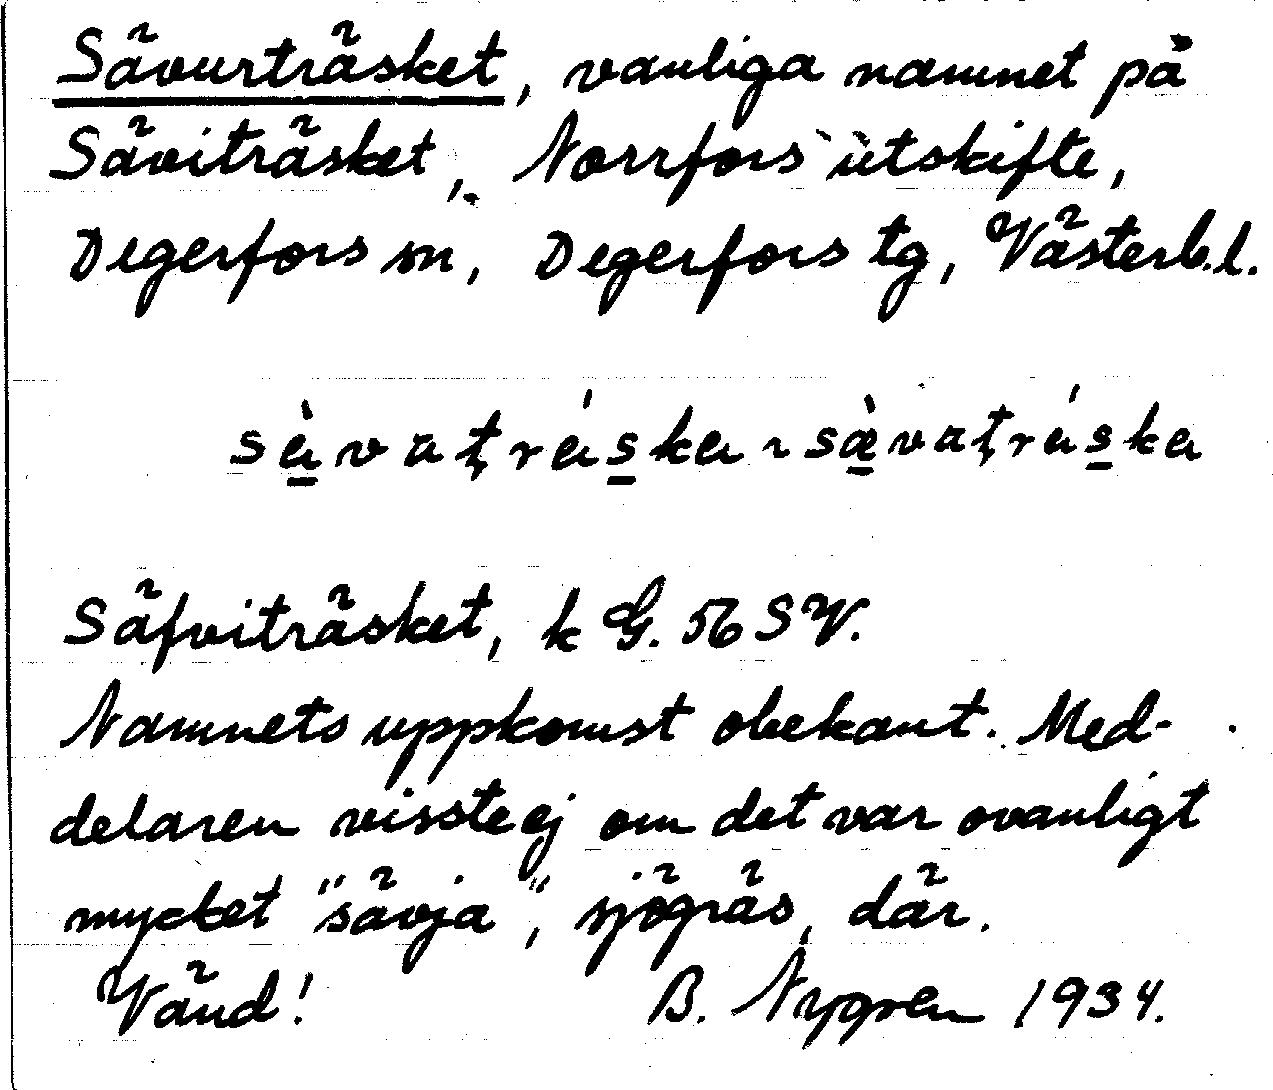 Sävurträsket, vanliga namnet på
Säviträsket, Norrfors utskifte,
Degerfors sn, Degerfors tg, Västerb.l.
sàvatráska ~ sæ̀vatráska
Säfviträsket, k G. 56 SV.
Namnets uppkomst obekant. Med-
delaren visste ej om det var ovanligt
mycket "sävja", sjögräs, där.
Vänd! B. Nygren 1934.